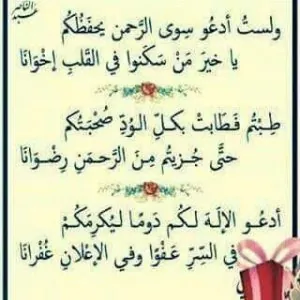 ولستُ أدعُو سِوى الرَّحمن يحفَظُكُم
يا خيرَ مَنْ سَكَنوا في القَلبِ إخْوَانَا
طِبْتُم فَطَابتْ بكـلِّ الـوُدِّ صُحْبَتُكم
حتَّى جُزيتُم مِنَ الرَّحمَنِ رِضْوَانَا
أدعُـو الإلَـهَ لكُـم دَومًـا ليُكرِمَكُـمْ
في السِّرِّ عَفْوًا وفي الإعْلانِ غُفْرانَا